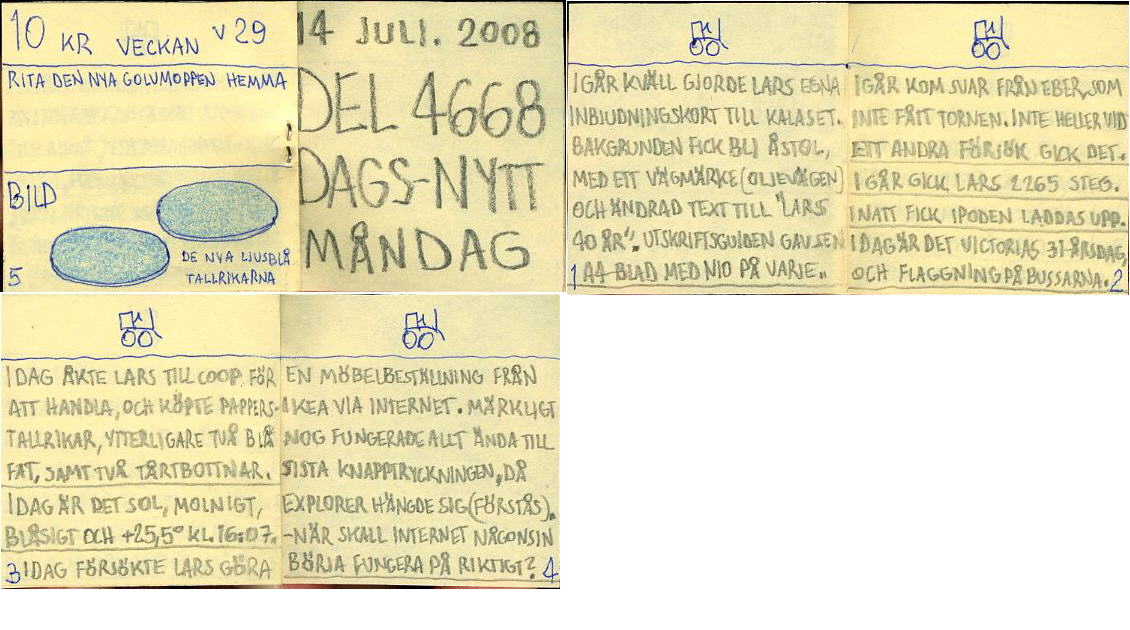 10 KR VECKAN V 29
RITA DEN NYA GOLVMOPPEN HEMMA
BILD
DE NYA LJUSBLÅ
TALLRIKARNA
5
14 JULI. 2008
DEL 4668
DAGS-NYTT
MÅNDAG
I GÅR KVÄLL GJORDE LARS EGNA
INBJUDNINGSKORT TILL KALASET.
BAKGRUNDEN FICK BLI ÅSTOL,
MED ETT VÄGMÄRKE (OLJEVÄGEN)
OCH ÄNDRAD TEXT TILL "LARS
40 ÅR". UTSKRIFTSGUIDEN GAV SEN
1 A4-BLAD MED NIO PÅ VARJE..
I GÅR KOM SVAR FRÅN EBER, SOM
INTE FÅTT TORNEN. INTE HELLER VID
ETT ANDRA FÖRSÖK GICK DET.
I GÅR GICK LARS 2265 STEG.
I NATT FICK IPODEN LADDAS UPP.
I DAG ÄR DET VICTORIAS 31-ÅRSDAG,
OCH FLAGGNING PÅ BUSSARNA. 2
I DAG ÅKTE LARS TILL COOP FÖR
ATT HANDLA, OCH KÖPTE PAPPERS-
TALLRIKAR, YTTERLIGARE TVÅ BLÅ
FAT, SAMT TVÅ TÅRTBOTTNAR.
I DAG ÄR DET SOL, MOLNIGT,
BLÅSIGT OCH +25,5° KL. 16:07.
3 I DAG FÖRSÖKTE LARS GÖRA
EN MÖBELBESTÄLLNING FRÅN
IKEA VIA INTERNET. MÄRKLIGT
NOG FUNGERADE ALLT ÄNDA TILL
SISTA KNAPPTRYCKNINGEN, DÅ
EXPLORER HÄNGDE SIG (FÖRSTÅS).
-NÄR SKALL INTERNET NÅGONSIN
BÖRJA FUNGERA PÅ RIKTIGT? 4